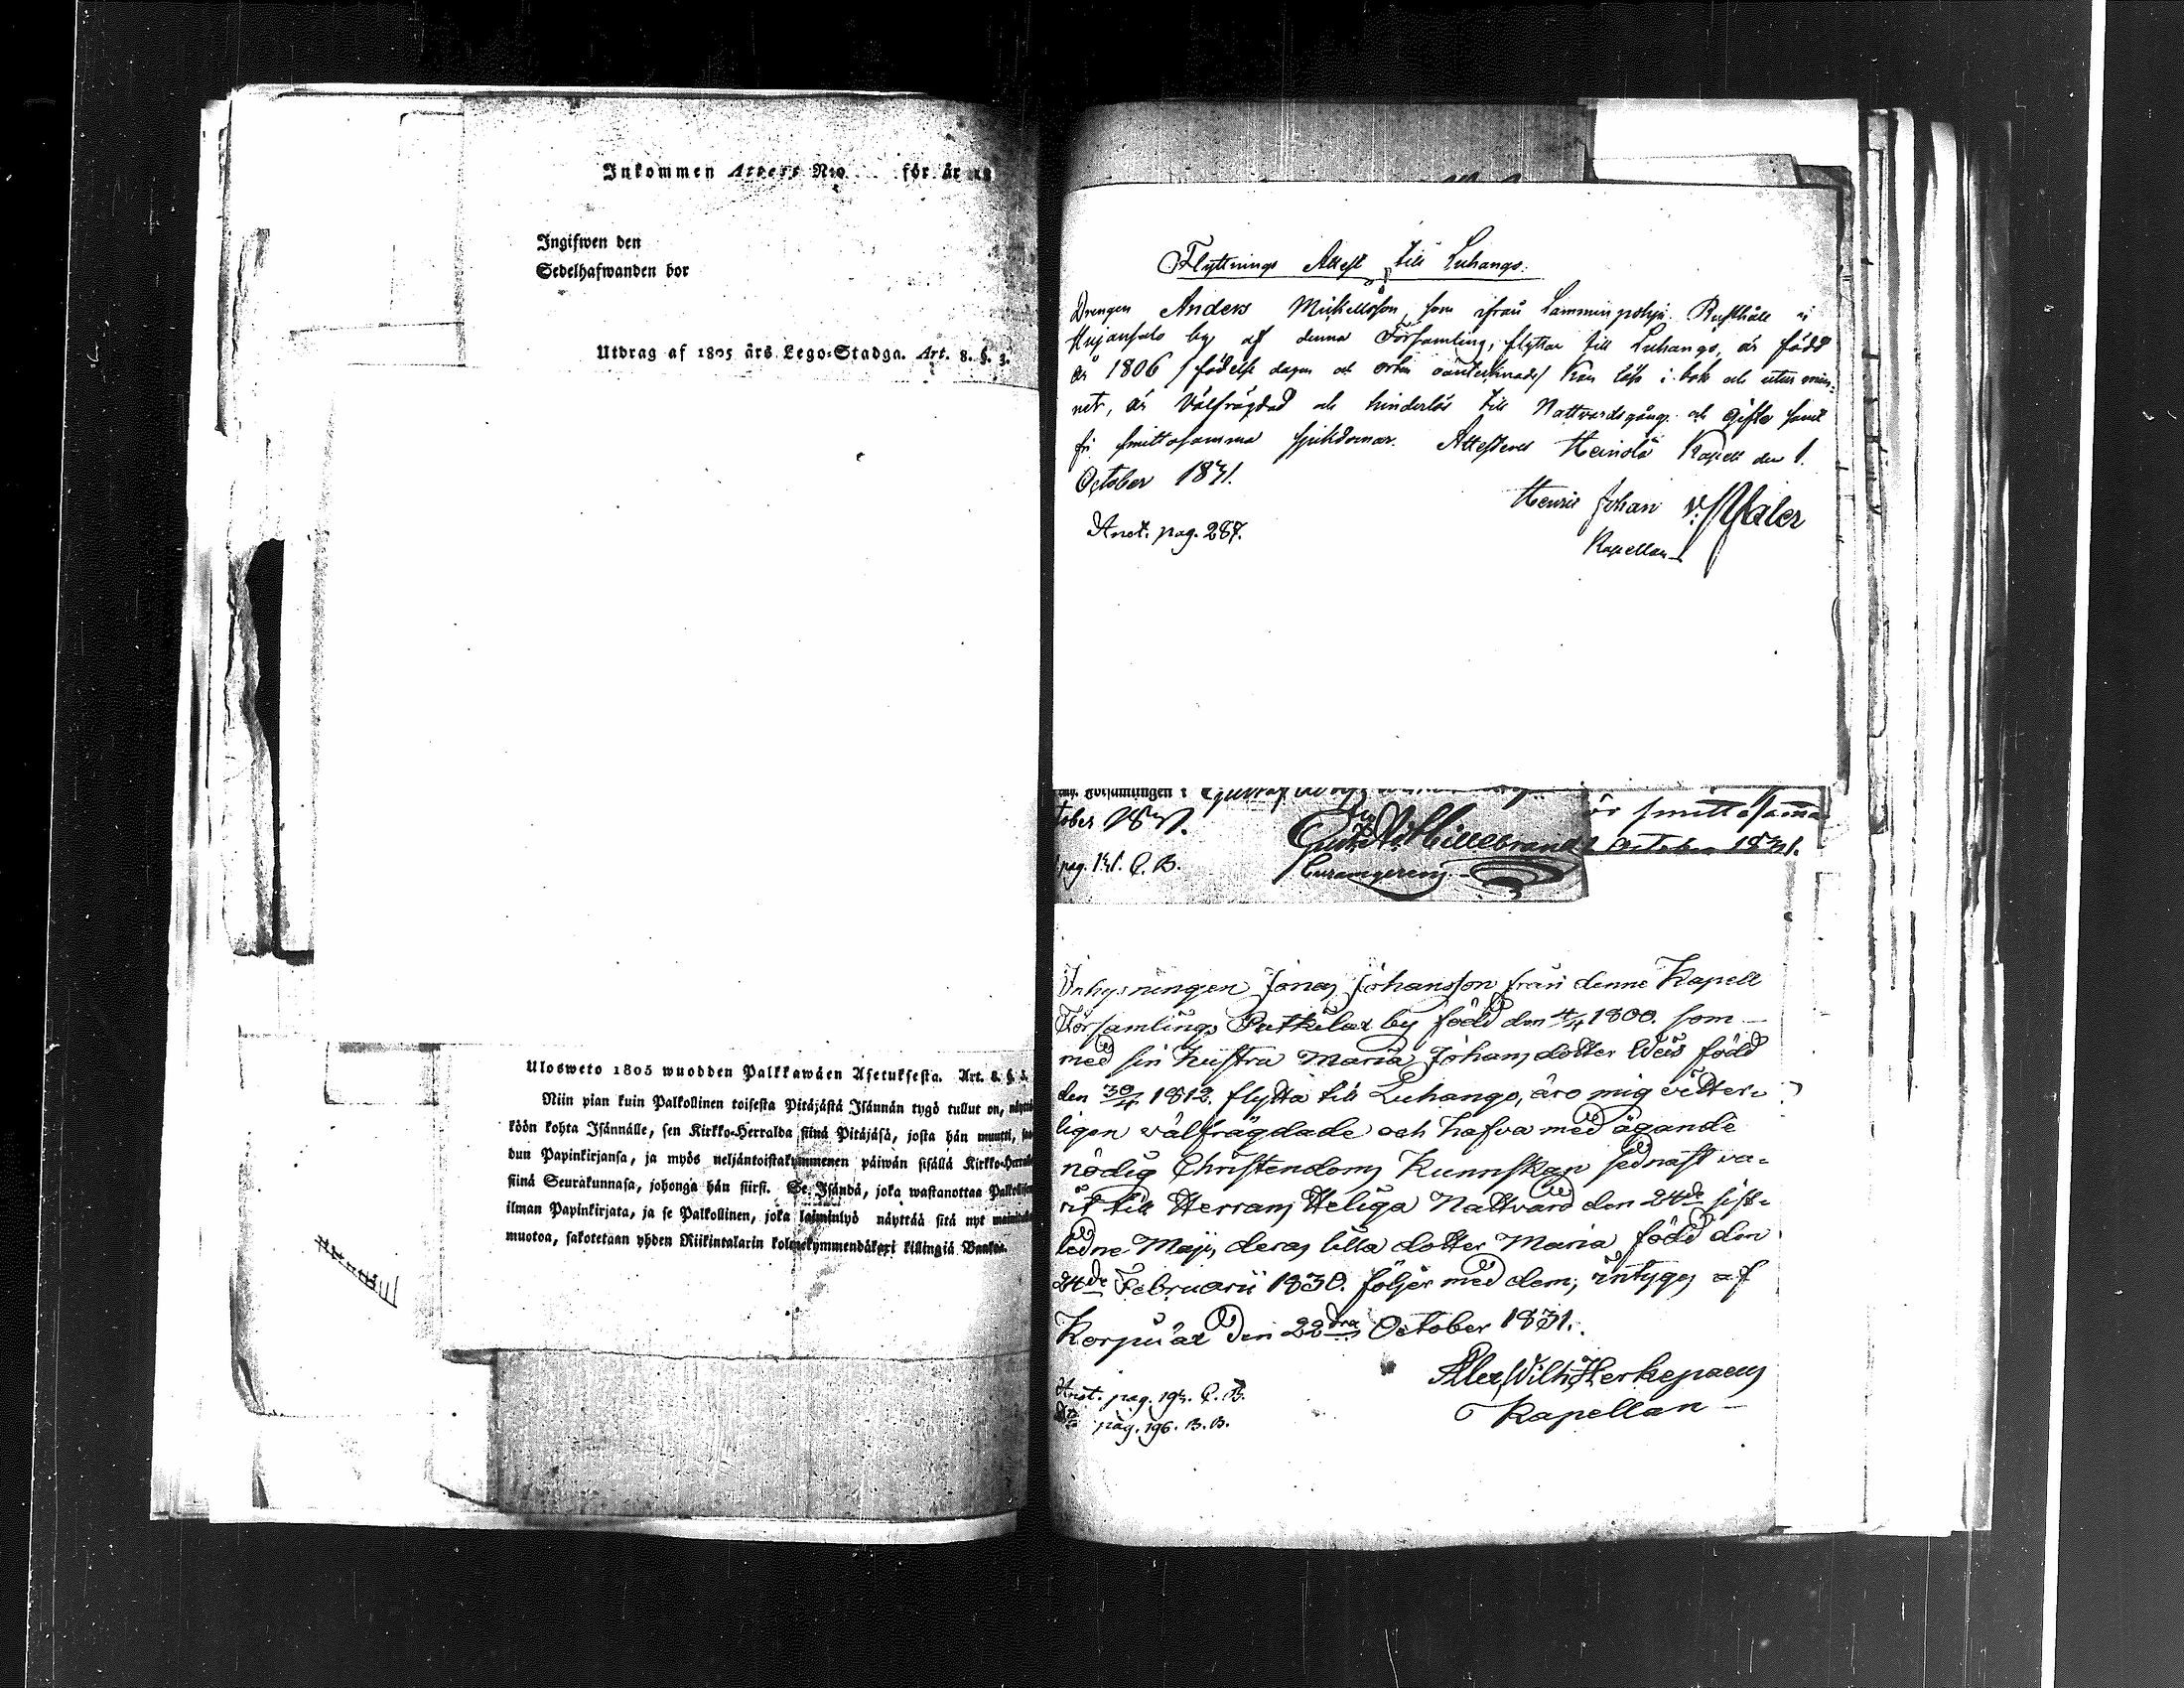 Inkommen Attest N:o för år 18
Ingifwen den
Sedelhafwanden bor
Utdrag af 1805 års Lego-Stadga. Art. 8. §. 3.
Ulosweto 1805 wuodden Palkkawäen Asetuksesta. Art. 8. §. 3.
Niin pian kuin Palkollinen toisesta Pitäjästä Isännän tygö tullut on,
köön kohta Isännälle, sen Kirkko-Herralda siinä Pitäjäsä, josta hän muutti,
dun Papinkirjansa, ja myös neljäntoistakymmenen päiwän sisällä Kirkko-
siinä Seurakunnasa, johonga hän siirsi. Se Isändä, joka wastanottaa
ilman Papinkirjata, ja se Palkollinen, joka laiminlyö näyttää sitä nyt
muotoa, sakotetaan yhden Riikintalarin kolmekymmendäkaxi killingiä Bankoa.
Flyttnings Attest till Luhango.
Drengen Anders Michellsson, som ifrån Lamminpohja Rusthåll i
by af denna Församling, flyttar till Luhango, är född
år 1806 / födelse dagen och orten oantecknade / Kan läsa i bok och utur min-
net, är Välfrägdad och hinderlös till Nattvardsgång och gifte samt
fri smittosamma sjukdomar. Attesteras Heinola Kapell den 1.
October 1831.
Henric Johan
Kapellan
Anct. pag. 287.
Församlingen i
tober 1831.
Hillebrand
pag. 131. C. B.
ör smittosamma
October 1831.
Inhysningen Jonas Johansson från denne Kapell
Församlings Putkilax by född den 4/4 1800. som
med sin hustru Maria Johans dotter född
den 30/4 1812. flytta till Luhango, äro mig vetter-
ligen välfrägdade och hafva med ägande
nödig Christendoms Kunnskap sednast va-
rit till Herrans Heliga Nattvard den 24de sist-
ledne Maji, deras lilla dotter Maria född den
24de Februarii 1830. följer med dem; intygas af
den 22dra October 1831.
Alex. Wilh.
Kapellan
Anct. pag. 193. C. B.
Do pag. 196. B. B.